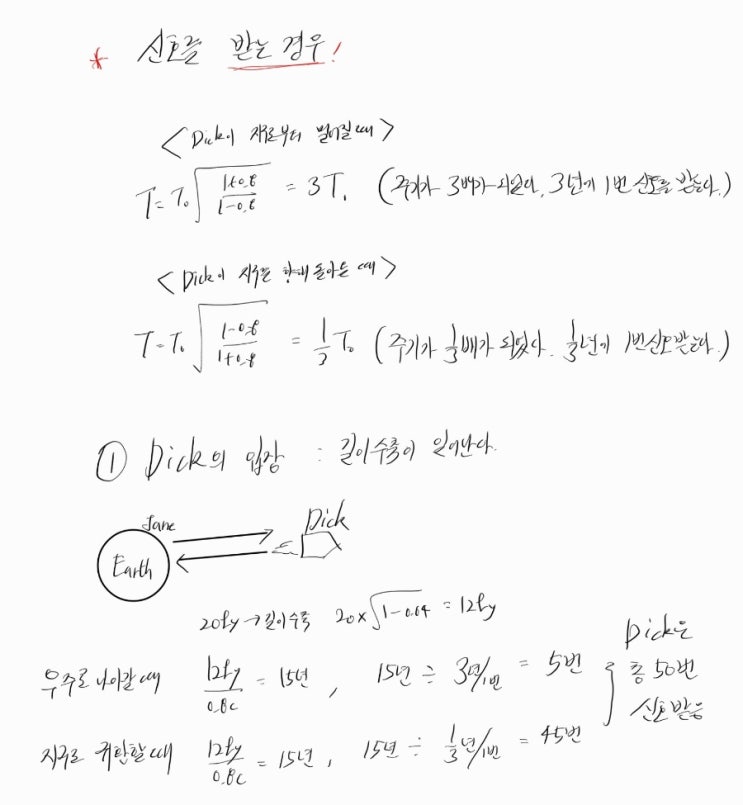 * 신호를 받는 경우!
<Dick이 지구로부터 멀어질 때>
T = T₀√((1+0.8)/(1-0.8)) = 3T₀ (주기가 3배가 되었다. 3년에 1번 신호를 받는다.)
<Dick이 지구를 향해 돌아올 때>
T = T₀√((1-0.8)/(1+0.8)) = 1/3 T₀ (주기가 1/3배가 되었다. 1/3년에 1번 신호받는다.)
① Dick의 입장 : 길이수축이 일어난다.
Jane
Dick
Earth
20ly → 길이수축 20×√(1-0.64) = 12ly
우주로 나아갈 때 12ly/0.8c = 15년, 15년 ÷ 3년/1번 = 5번
지구로 귀환할 때 12ly/0.8c = 15년, 15년 ÷ 1/3년/1번 = 45번
Dick은
총 50번
신호받음